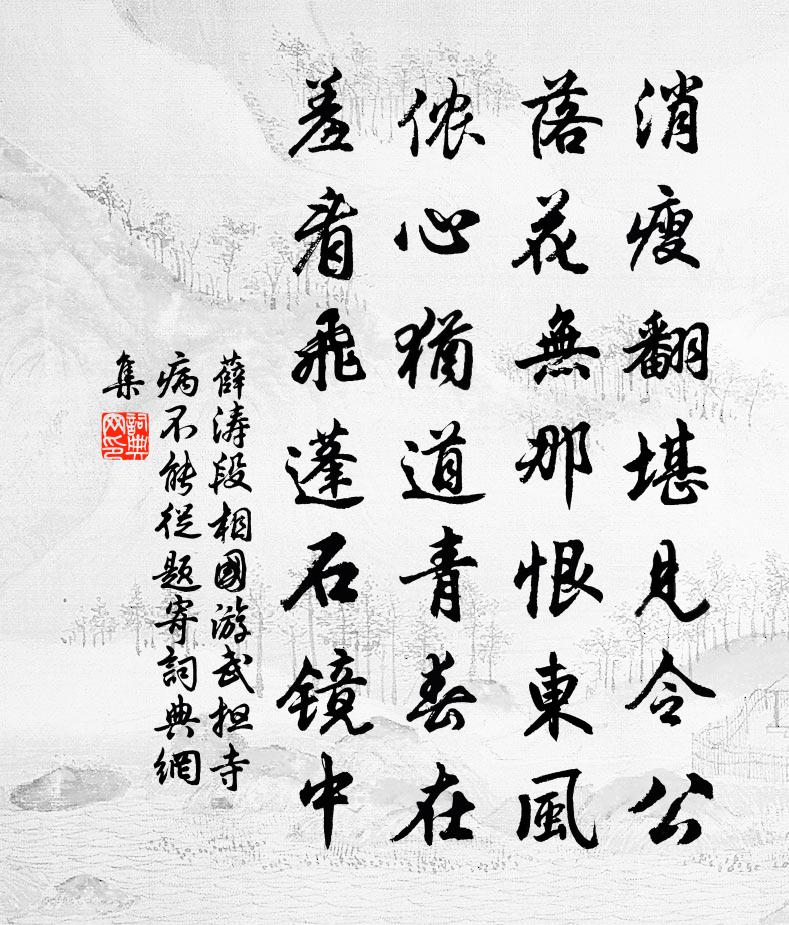 消瘦翻堪見令公
落花無那恨東風
侬心猶道青春在
羞看飛蓬石镜中
薛涛段相國游武担寺
病不能從题寄詞典網
集
詞典網印